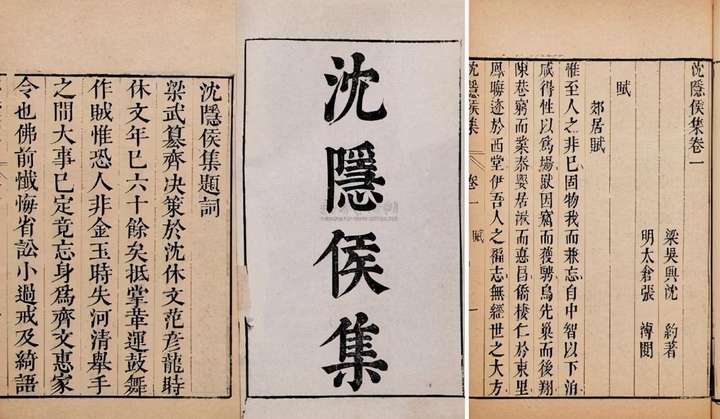 沈隱侯集題詞
梁武篡齊决策於沈休文范彥龍時
休文年已六十餘矣抵掌革運鼓舞
作賊惟恐人非金玉時失河清舉手
之間大事已定竟忘身爲齊文惠家
令也佛前懺悔省訟小過戒及綺語
沈隱侯集
沈隱侯集卷一
梁吳興沈 約著
明太倉張 溥閱
賦
郊居賦
惟至人之非已固物我而兼忘自中智以下洎
咸得性以爲場獸因窟而獲騁鳥先巢而後翔
陳巷窮而業泰嬰居湫而悳昌僑棲仁於東里
鳳晦迹於西堂伊吾人之褊志無經世之大方
沈隱侯集 卷一 賦 一